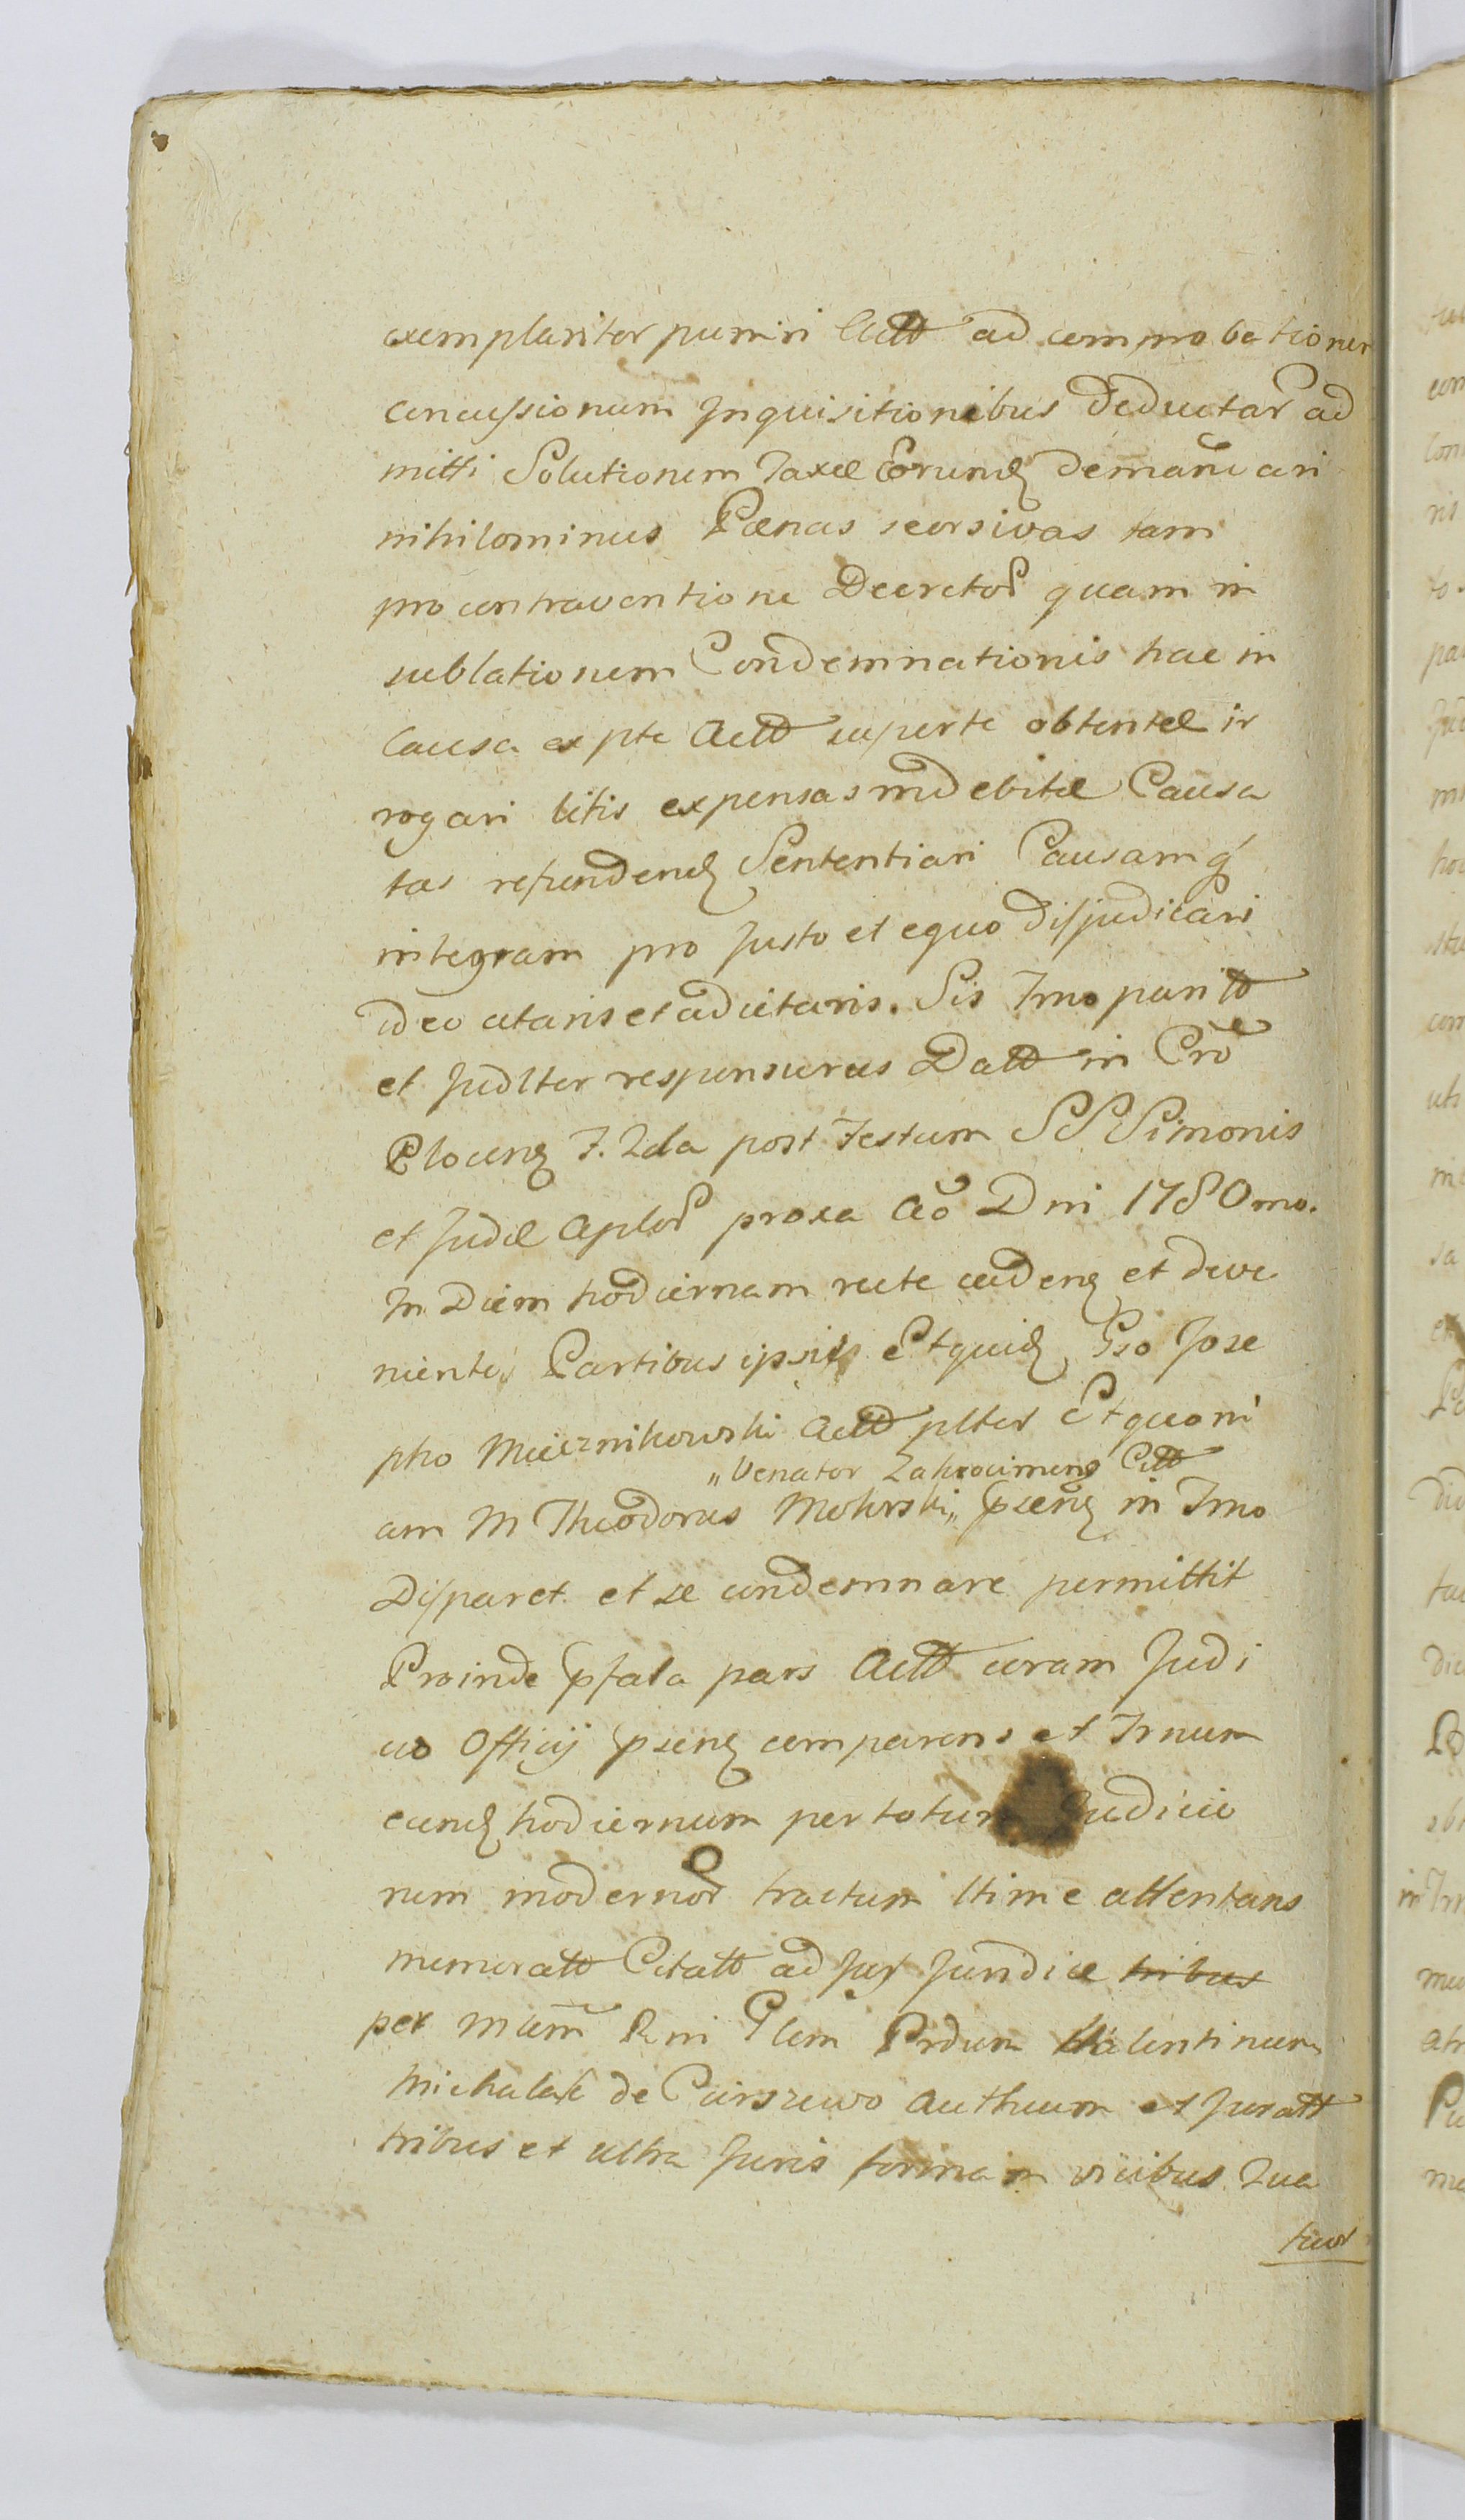 exemplariter puniri Actt ad comprobationem
concussionum Inquisitionibus deductar ad
mitti Solutionem Taxæ Eorund demandari
nihilominus Pænas seorsivas tam
pro contraventione Decretor quam in
sublationem Condemnationis hac in
Causa ex pte Actt superte obtentæ ir
rogari litis expensas indebitæ Causa
tas refundend Sententiari Causamq
integram pro Justo et equo disjudicari
ideo citaris et adcitaris. Sis Tmo paritt
et Judlter responsurus Datt in Cro
Plocen F. 2da post Festum SS Simonis
et Judæ Aplor proxa Ao Dni 1780mo.
In Diem hodiernam recte caden et deve
nientes Partibus ipsis Etquid Gso Jose
pho Miecznikowski Actt plter Etquoni
„Venator Zakrocimens Citt
am M Theodorus Mokrski„ psen in Tmo
Disparet et se condemnare permittit
Proinde psata pars Actt coram Judi
cio Officij psen comparens et Tmum
eund hodiernum per totum Judicio
rum modernor tractum ltime attentans
memoratt Citatt ad Jus Juridice tribus
per Mtem Rni Glem Prdum Valentinum
Michalak de Cierszewo Authcum et Juratt
tribus et ultra Juris formam vicibus Qua
tuor